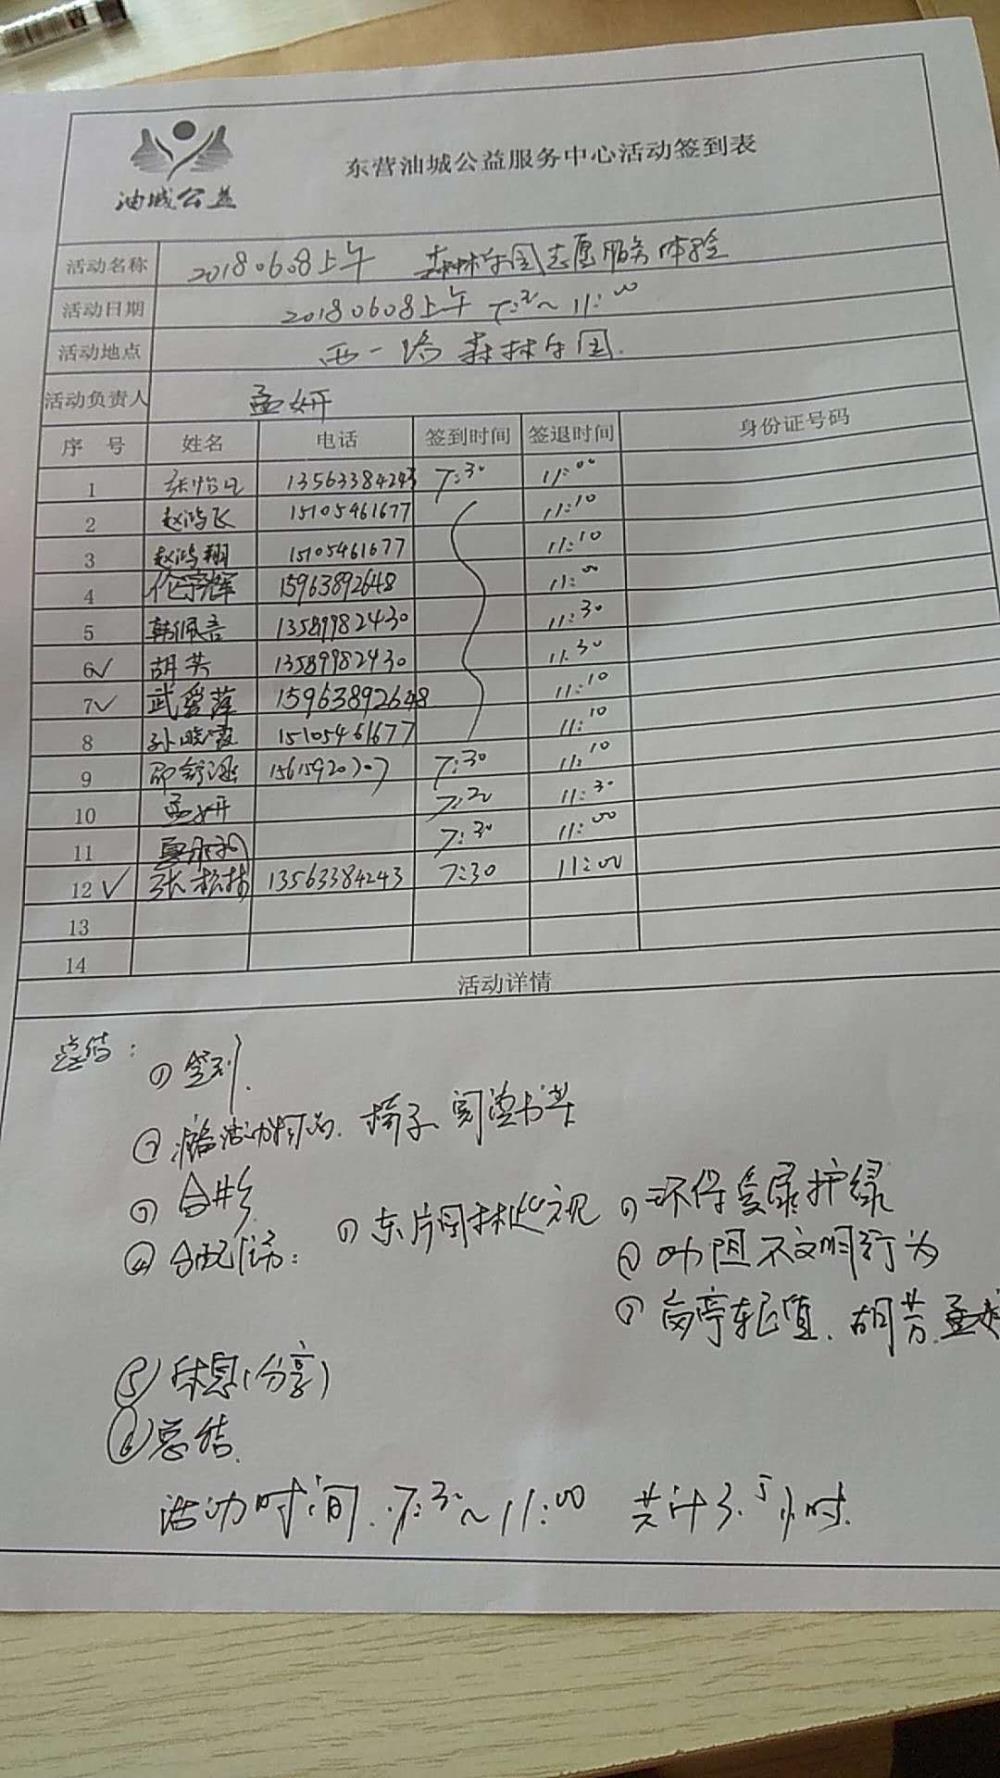 油城公益
东营油城公益服务中心活动签到表
活动名称 20180608上午 森林乐园志愿服务体验
活动日期 20180608上午 7:30~11:00
活动地点 西一路森林乐园.
活动负责人 孟妍
序号 姓名 电话 签到时间 签退时间 身份证号码
1 张怡 13563384243 7:30 11:00
2 赵鸿飞 15105461677 11:10
3 赵鸿翔 15105461677 11:10
4 伦宗辉 15963892648 11:00
5 韩佩吾 13589982430 11:30
6✓ 胡芳 13589982430 11:30
7✓ 武爱萍 15963892648 11:10
8 孙晓霞 15105461677 11:10
9 邵舒涵 15615920707 7:30 11:10
10 孟妍 7:20 11:30
11 7:30 11:00
12✓ 张松林 13563384243 7:30 11:00
13
14
活动详情
总结:
①签到.
② 活动物品. 椅子 阅读书类
③合影
④分配任务: ①东片园林巡视 ①环保爱绿护绿
②劝阻不文明行为
③岗亭轮值. 胡芳.孟妍
⑤休息(分享)
⑥总结.
活动时间. 7:30~11:00 共计3.5小时.